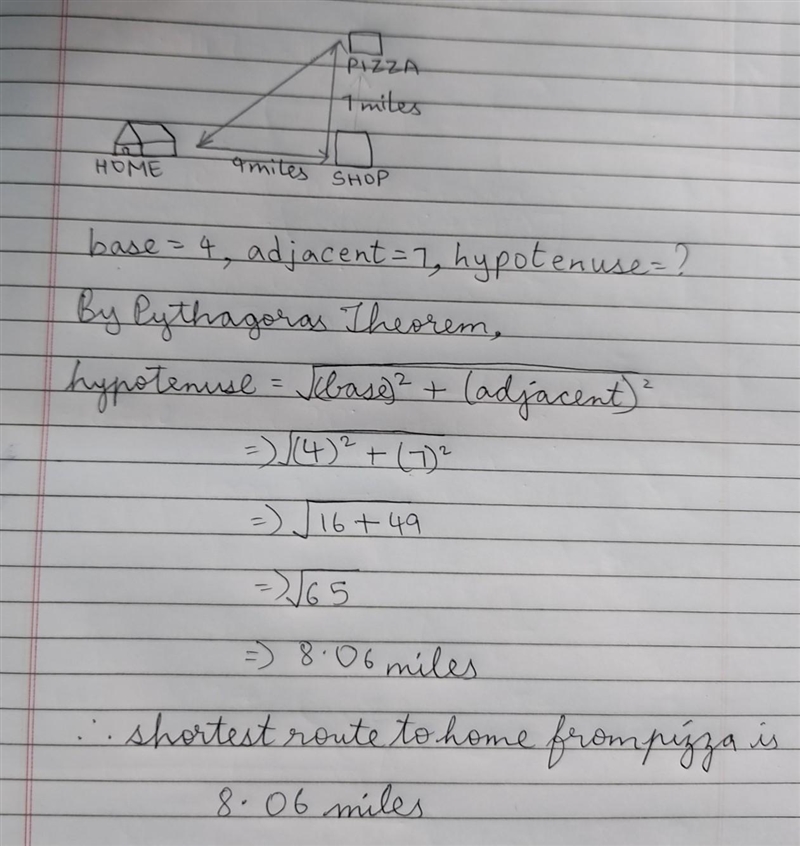 PIZZA
7miles
HOME
4miles
SHOP
base = 4, adjacent = 7, hypotenuse = ?
By Pythagoras Theorem,
hypotenuse = √(base)² + (adjacent)²
=> √(4)² + (7)²
=> √16 + 49
=> √65
=> 8.06 miles
∴ shortest route to home from pizza is
8.06 miles